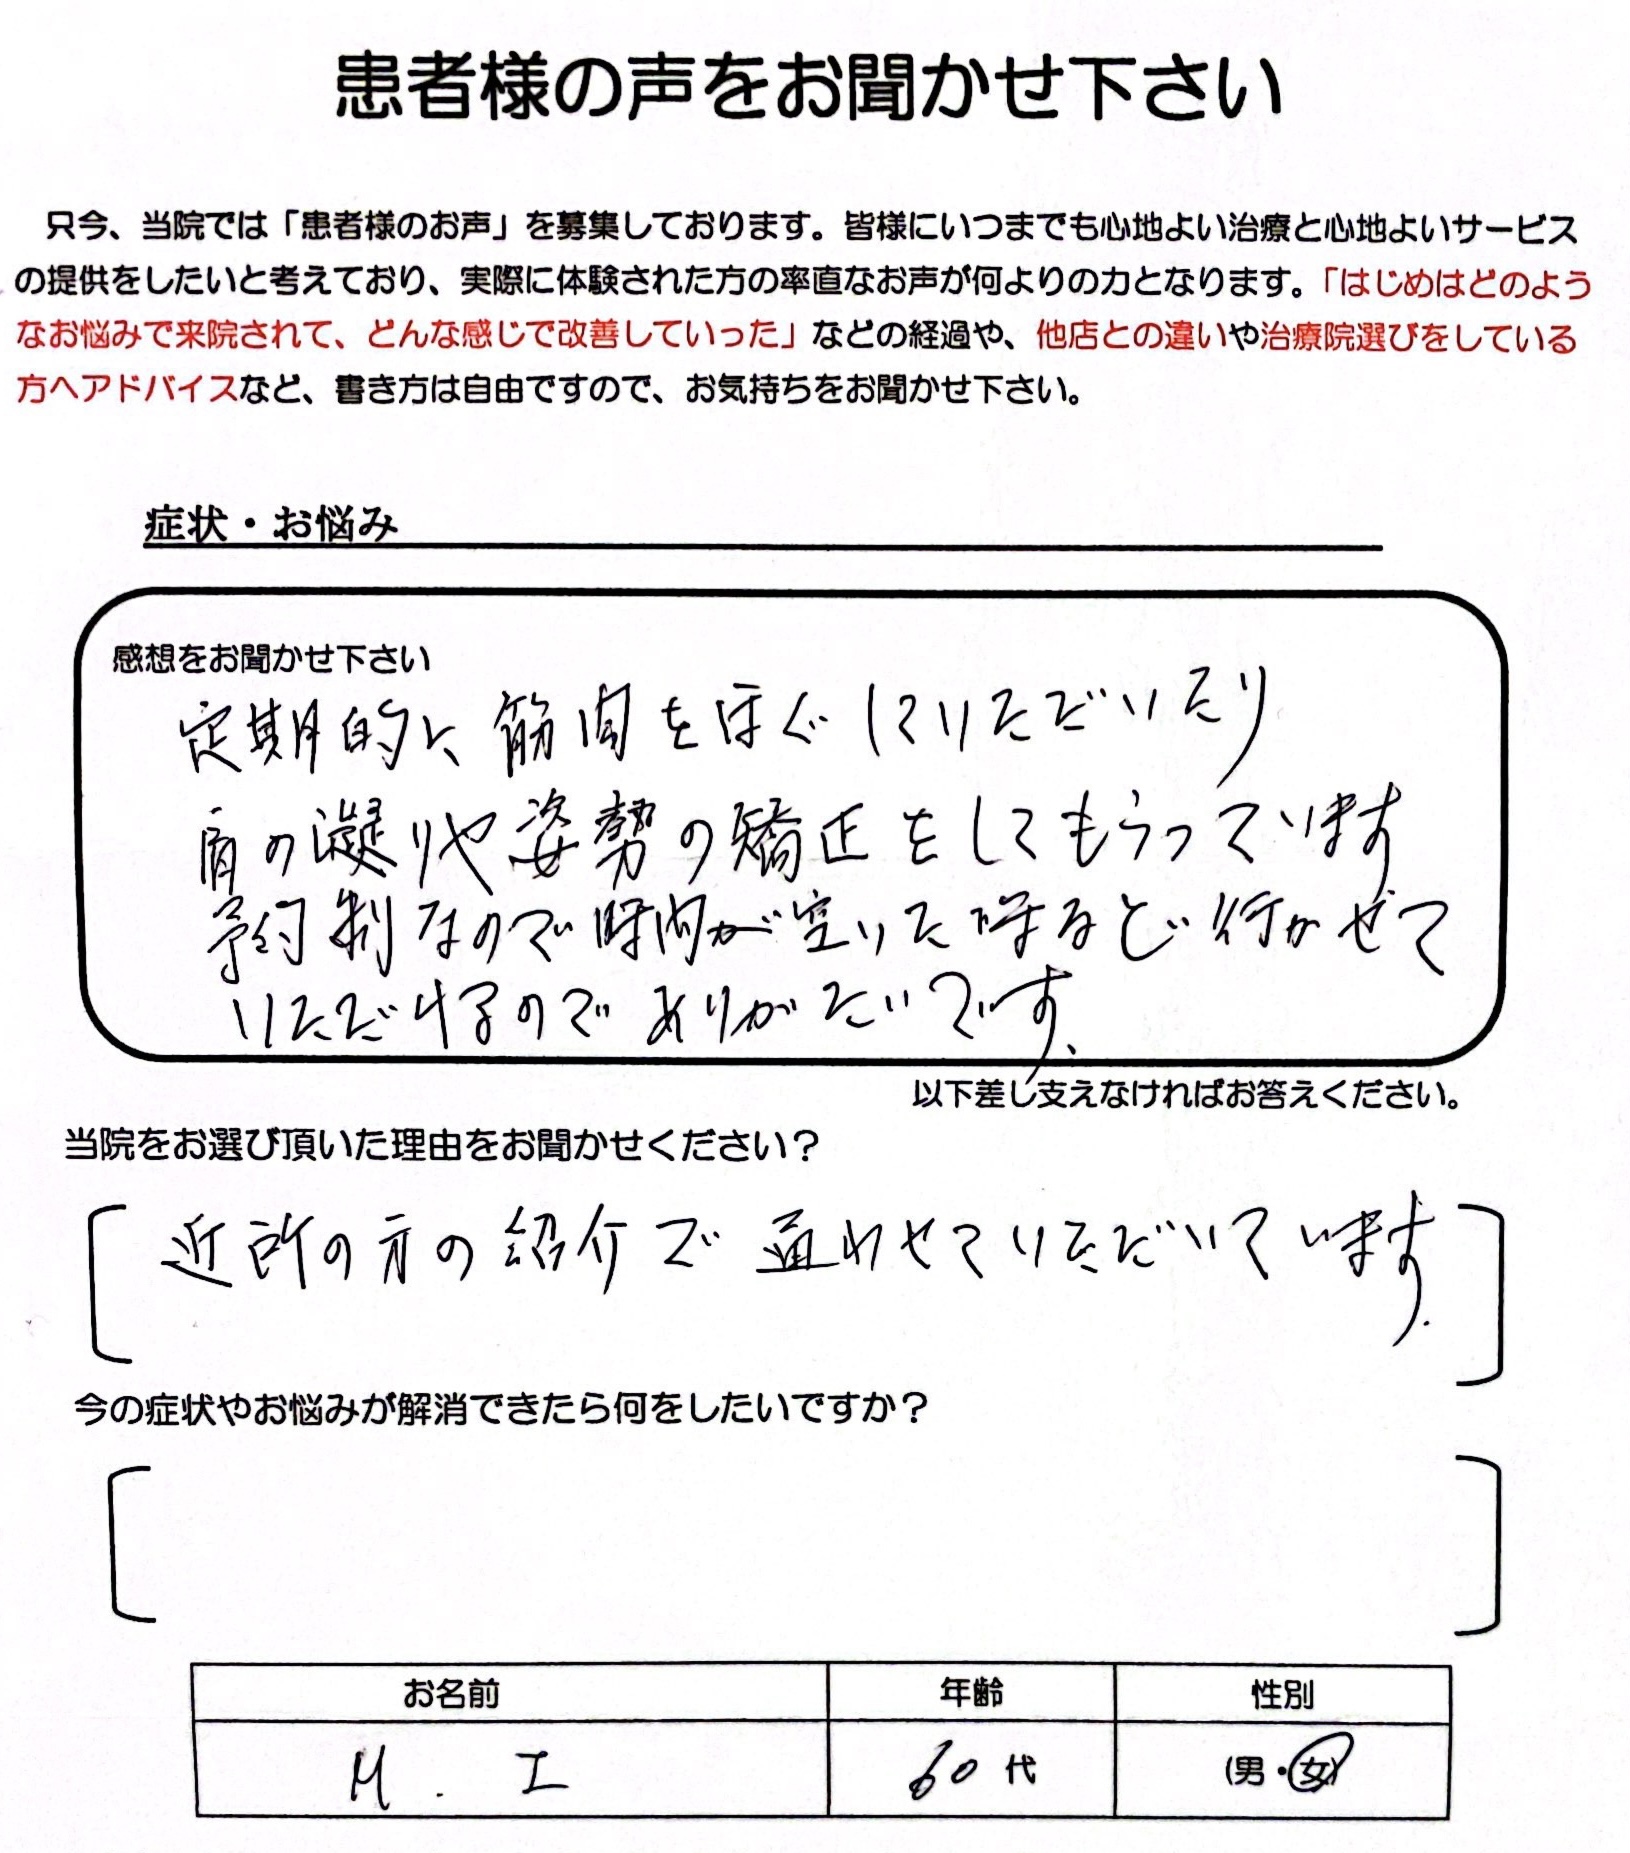 患者様の声をお聞かせ下さい
只今、当院では「患者様のお声」を募集しております。皆様にいつまでも心地よい治療と心地よいサービス
の提供をしたいと考えており、実際に体験された方の率直なお声が何よりの力となります。「はじめはどのよう
なお悩みで来院されて、どんな感じで改善していった」などの経過や、他店との違いや治療院選びをしている
方へアドバイスなど、書き方は自由ですので、お気持ちをお聞かせ下さい。
症状・お悩み
感想をお聞かせ下さい
定期的に筋肉をほぐしていただいたり
肩の凝りや姿勢の矯正をしてもらっています
予約制なので時間が空いた時など行かせて
いただけるのでありがたいです、
以下差し支えなければお答えください。
当院をお選び頂いた理由をお聞かせください？
近所の方の紹介で通わせていただいています.
今の症状やお悩みが解消できたら何をしたいですか？
お名前 年齢 性別
M. I 60代 (男・女)